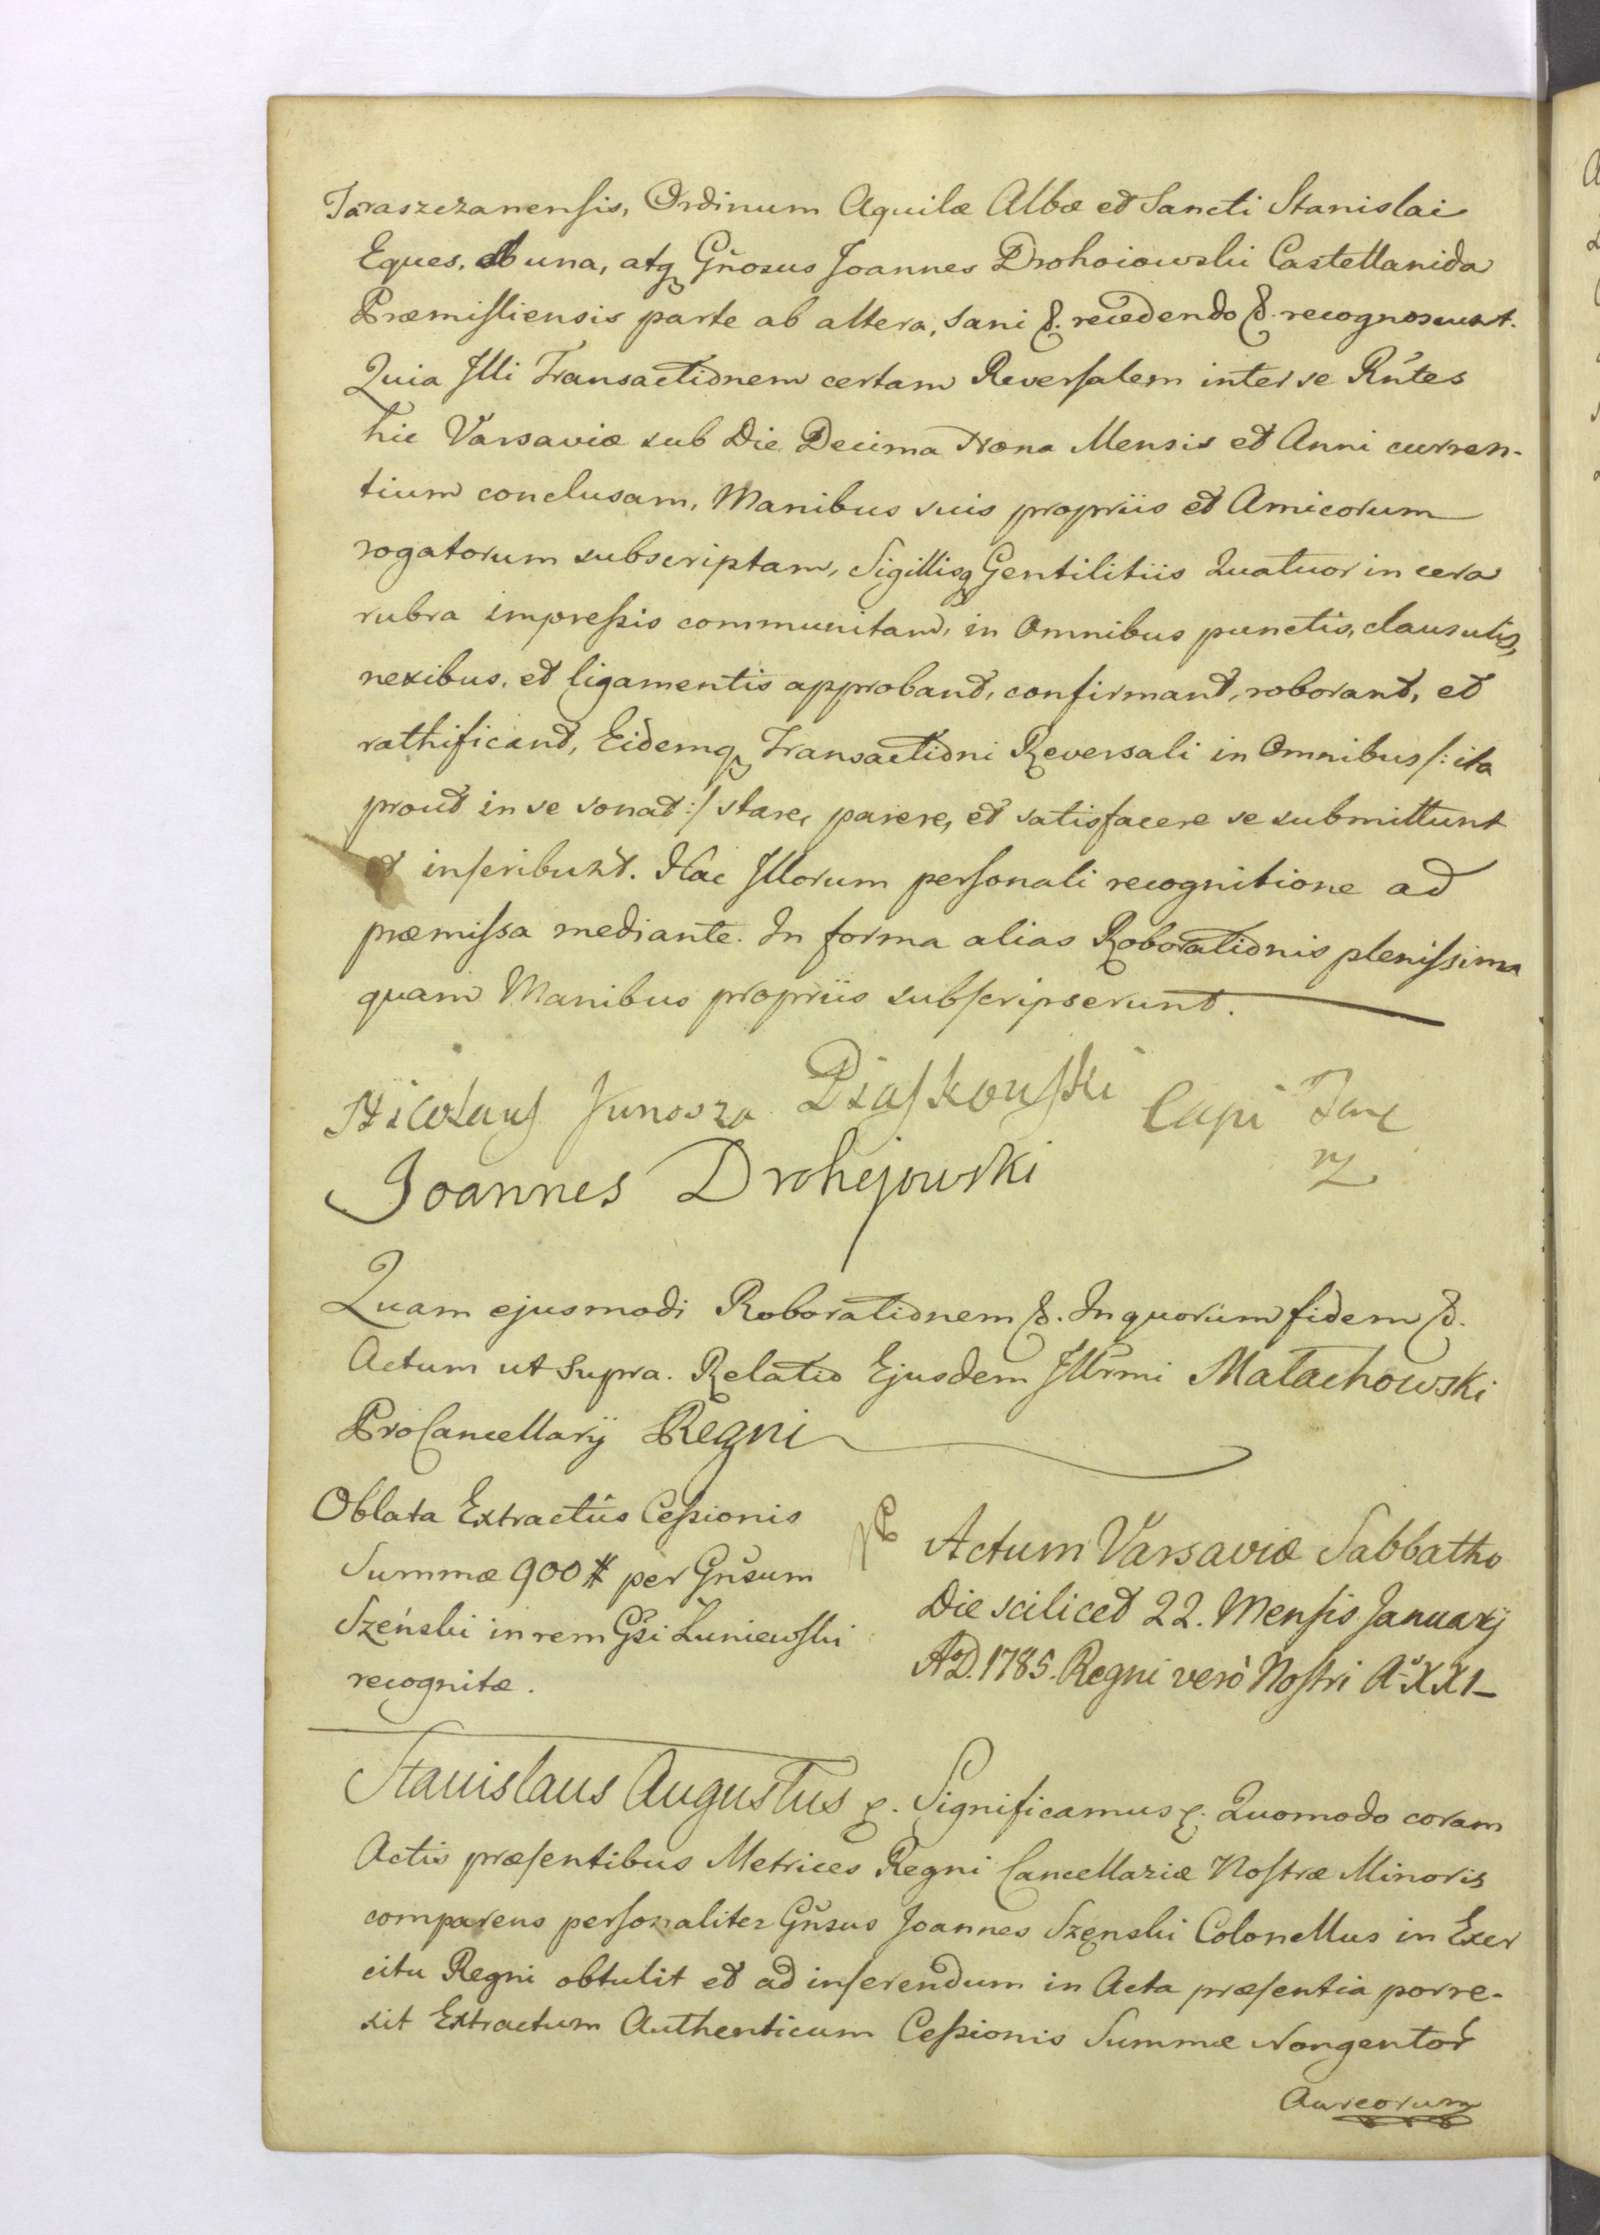 Taraszczanensis, Ordinum Aquilæ Albæ et Sancti Stanislai
Eques, ab una, atq Gñosus Joannes Drohoiowski Castellanida
Præmisliensis parte ab altera, sani &. recedendo &. recognoscunt.
Quia Illi Transactionem certam Reversalem inter se Rñtes
hic Varsaviæ sub Die Decima Nona Mensis et Anni curren-
tium conclusam, Manibus suis propriis et Amicorum
rogatorum subscriptam, Sigillisq Gentilitiis Quatuor in cera
rubra impressis communitam, in Omnibus punctis, clausulis,
nexibus, et ligamentis approbant, confirmant, roborant, et
rathificant, Eidemq Transactioni Reversali in Omnibus /: ita
prout in se sonat :/ stare, parere, et satisfacere se submittunt
et inscribunt. Hac Illorum personali recognitione ad
præmissa mediante. In forma alias Roborationis plenissima
quam Manibus propriis subscripserunt.
Nicolaus Junosza Piaskowski Capi Tar
Joannes Drohejowski
Quam ejusmodi Roborationem &. In quorum fidem &.
Actum ut Supra. Relatio Ejusdem Illrmi Małachowski
ProCancellarij Regni
Oblata Extractûs Cessionis
Summæ 900 # per Gñsum
Szeński in rem Gsi Łuniewski
recognitæ.
Actum Varsaviæ Sabbatho
Die scilicet 22. Mensis Januarij
A°D. 1785. Regni verò Nostri A° XXI
Stanislaus Augustus &. Significamus &. Quomodo coram
Actis præsentibus Metrices Regni Cancellariæ Nostræ Minoris
comparens personaliter Gñsus Joannes Szeński Colonellus in Exer
citu Regni obtulit et ad inserendum in Acta præsentia porre-
xit Extractum Authenticum Cessionis Summæ Nongentor
Aureorum